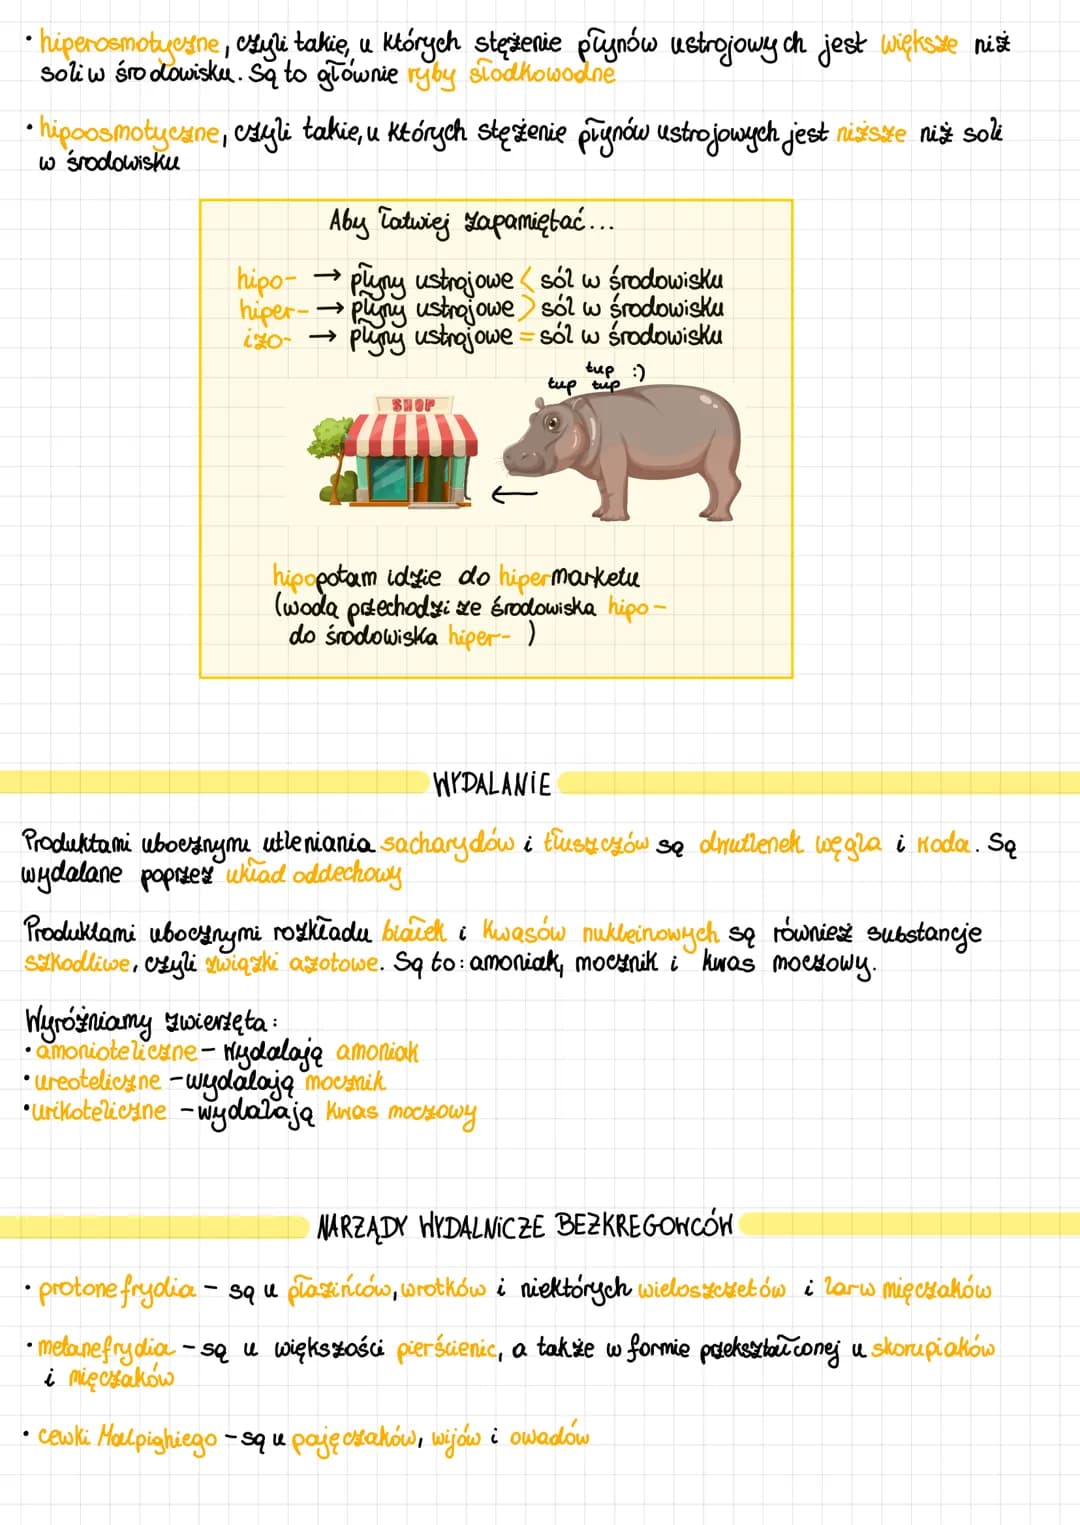 • hiperosmotyczne, czyli takie, u których stężenie płynów ustrojowych jest większe niż
soli w środowisku. Są to głównie ryby słodkowodne
• hipoosmotyczne, czyli takie, u których stężenie płynów ustrojowych jest niższe niż soli
w środowisku
Aby łatwiej zapamiętać...
hipo- → płyny ustrojowe < sól w środowisku
hiper- → płyny ustrojowe > sól w środowisku
izo- → płyny ustrojowe = sól w środowisku
tup :)
tup tup
SHOP
←
hipopotam idzie do hipermarketu
(woda przechodzi ze środowiska hipo-
do środowiska hiper- )
WYDALANIE
Produktami ubocznymi utleniania sacharydów i tłuszczów są dwutlenek węgla i woda. Są
wydalane poprzez układ oddechowy
Produktami ubocznymi rozkładu białek i kwasów nukleinowych są również substancje
szkodliwe, czyli związki azotowe. Są to: amoniak, mocznik i kwas moczowy.
Wyróżniamy zwierzęta:
• amonioteliczne - wydalają amoniak
• ureoteliczne - wydalają mocznik
• urikoteliczne - wydalają kwas moczowy
NARZĄDY WYDALNICZE BEZKRĘGOWCÓW
• protonefrydia - są u płazińców, wrotków i niektórych wieloszczetów i larw mięczaków
• metanefrydia - są u większości pierścienic, a także w formie przekształconej u skorupiaków
i mięczaków
• cewki Malpighiego - są u pajęczaków, wijów i owadów